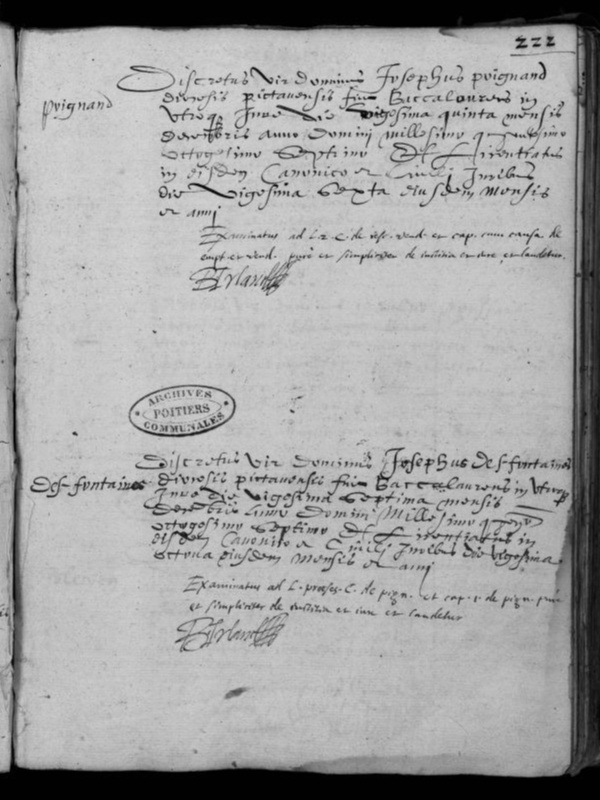 222
poignand
Discretus vir dominus Josephus poignand
diocesis pictavensis fuit Baccalaureus in
utroq Jure die vigesima quinta mensis
decebris anno Domini millesimo
octogesimo septimo et Licentiatus
in eisdem Canonico et Civili Juribus
die vigesima sexta eiusdem mensis
et anni
Examinatus ad L. 2. C. de vend. et cap. cum causa de
empt. et vend. pure et simpliciter de iustitia et iure et laudetur.
ARCHIVES
POITIERS
COMMUNALES
des-fontaines
Discretus vir dominus Josephus des-fontaines
diocesis pictavensis fuit Baccalaureus in utroq
Jure die vigesima septima mensis
decebris anno Domini Millesimo
octogesimo septimo et Licentiatus in
eisdem Canonico et Civili Juribus die vigesima
octava eiusdem mensis et anni
Examinatus ad L. C. de pign. et cap. de pign. pure
et simpliciter de iustitia et iure et laudetur